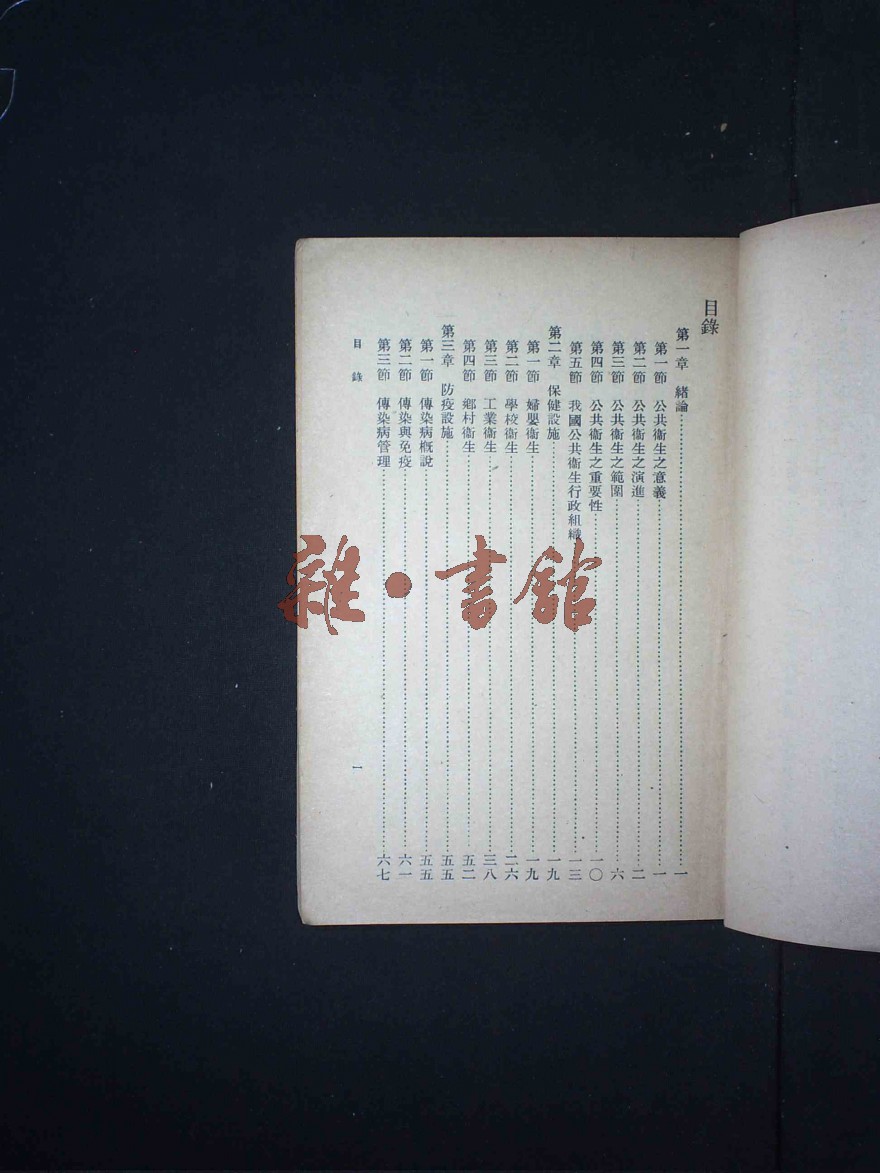 目錄
第一章 緒論……一
第一節 公共衞生之意義……一
第二節 公共衞生之演進……二
第三節 公共衞生之範圍……六
第四節 公共衞生之重要性……一〇
第五節 我國公共衞生行政組織……一三
第二章 保健設施……一九
第一節 婦嬰衞生……一九
第二節 學校衞生……二六
第三節 工業衞生……三八
第四節 鄉村衞生……五二
第三章 防疫設施……五五
第一節 傳染病概說……五五
第二節 傳染與免疫……六一
第三節 傳染病管理……六七
目錄 一
雜·書館